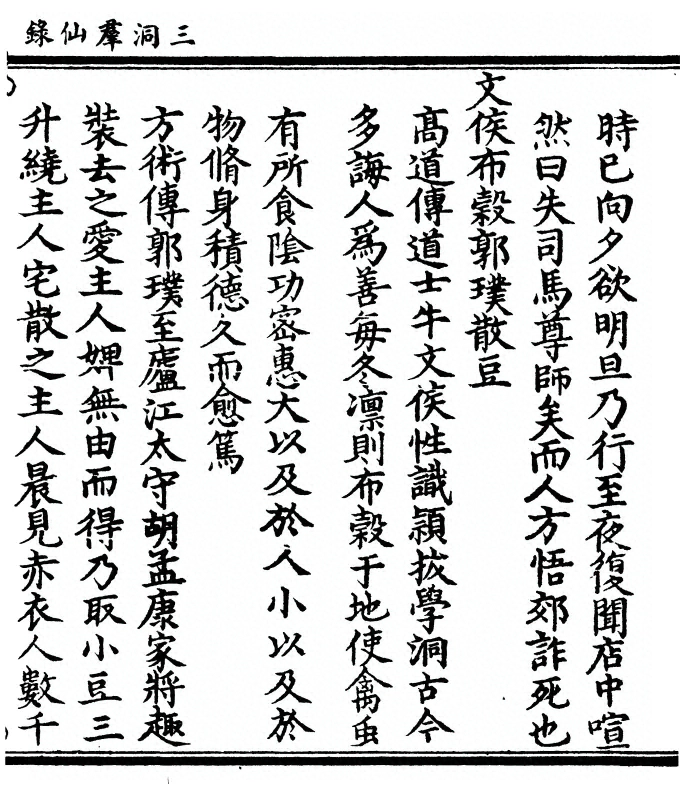 三洞羣仙錄
時已向夕欲明旦乃行至夜復聞店中喧
然曰失司馬尊師矣而人方悟郊詐死也
文侯布穀郭璞散豆
高道傳道士牛文侯性識頴拔學洞古今
多誨人爲善每冬凛則布穀于地使禽虫
有所食隂功密惠大以及於人小以及於
物脩身積德久而愈篤
方術傳郭璞至廬江太守胡孟康家將趣
裝去之愛主人婢無由而得乃取小豆三
升繞主人宅散之主人晨見赤衣人數千